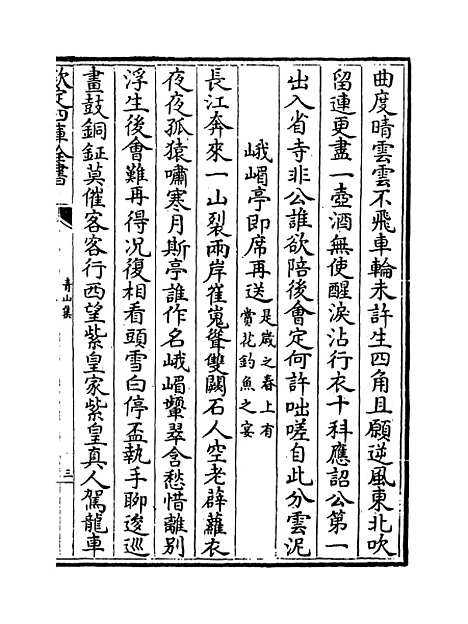 曲度晴雲雲不飛車輪未許生四角且願逆風東北吹
留連更盡一壺酒無使醒淚沾行衣十科應詔公第一
出入省寺非公誰欲陪後會定何許咄嗟自此分雲泥
峨嵋亭即席再送是歲之春上有
賞花釣魚之宴
長江奔來一山裂兩岸崔嵬聳雙闕石人空老薜蘿衣
夜夜孤猿嘯寒月斯亭誰作名峨嵋顰翠含愁惜離別
浮生後會難再得况復相看頭雪白停盃執手聊逡巡
畫鼓銅鉦莫催客客行西望紫皇家紫皇真人駕龍車
欽定四庫全書
青山集
三